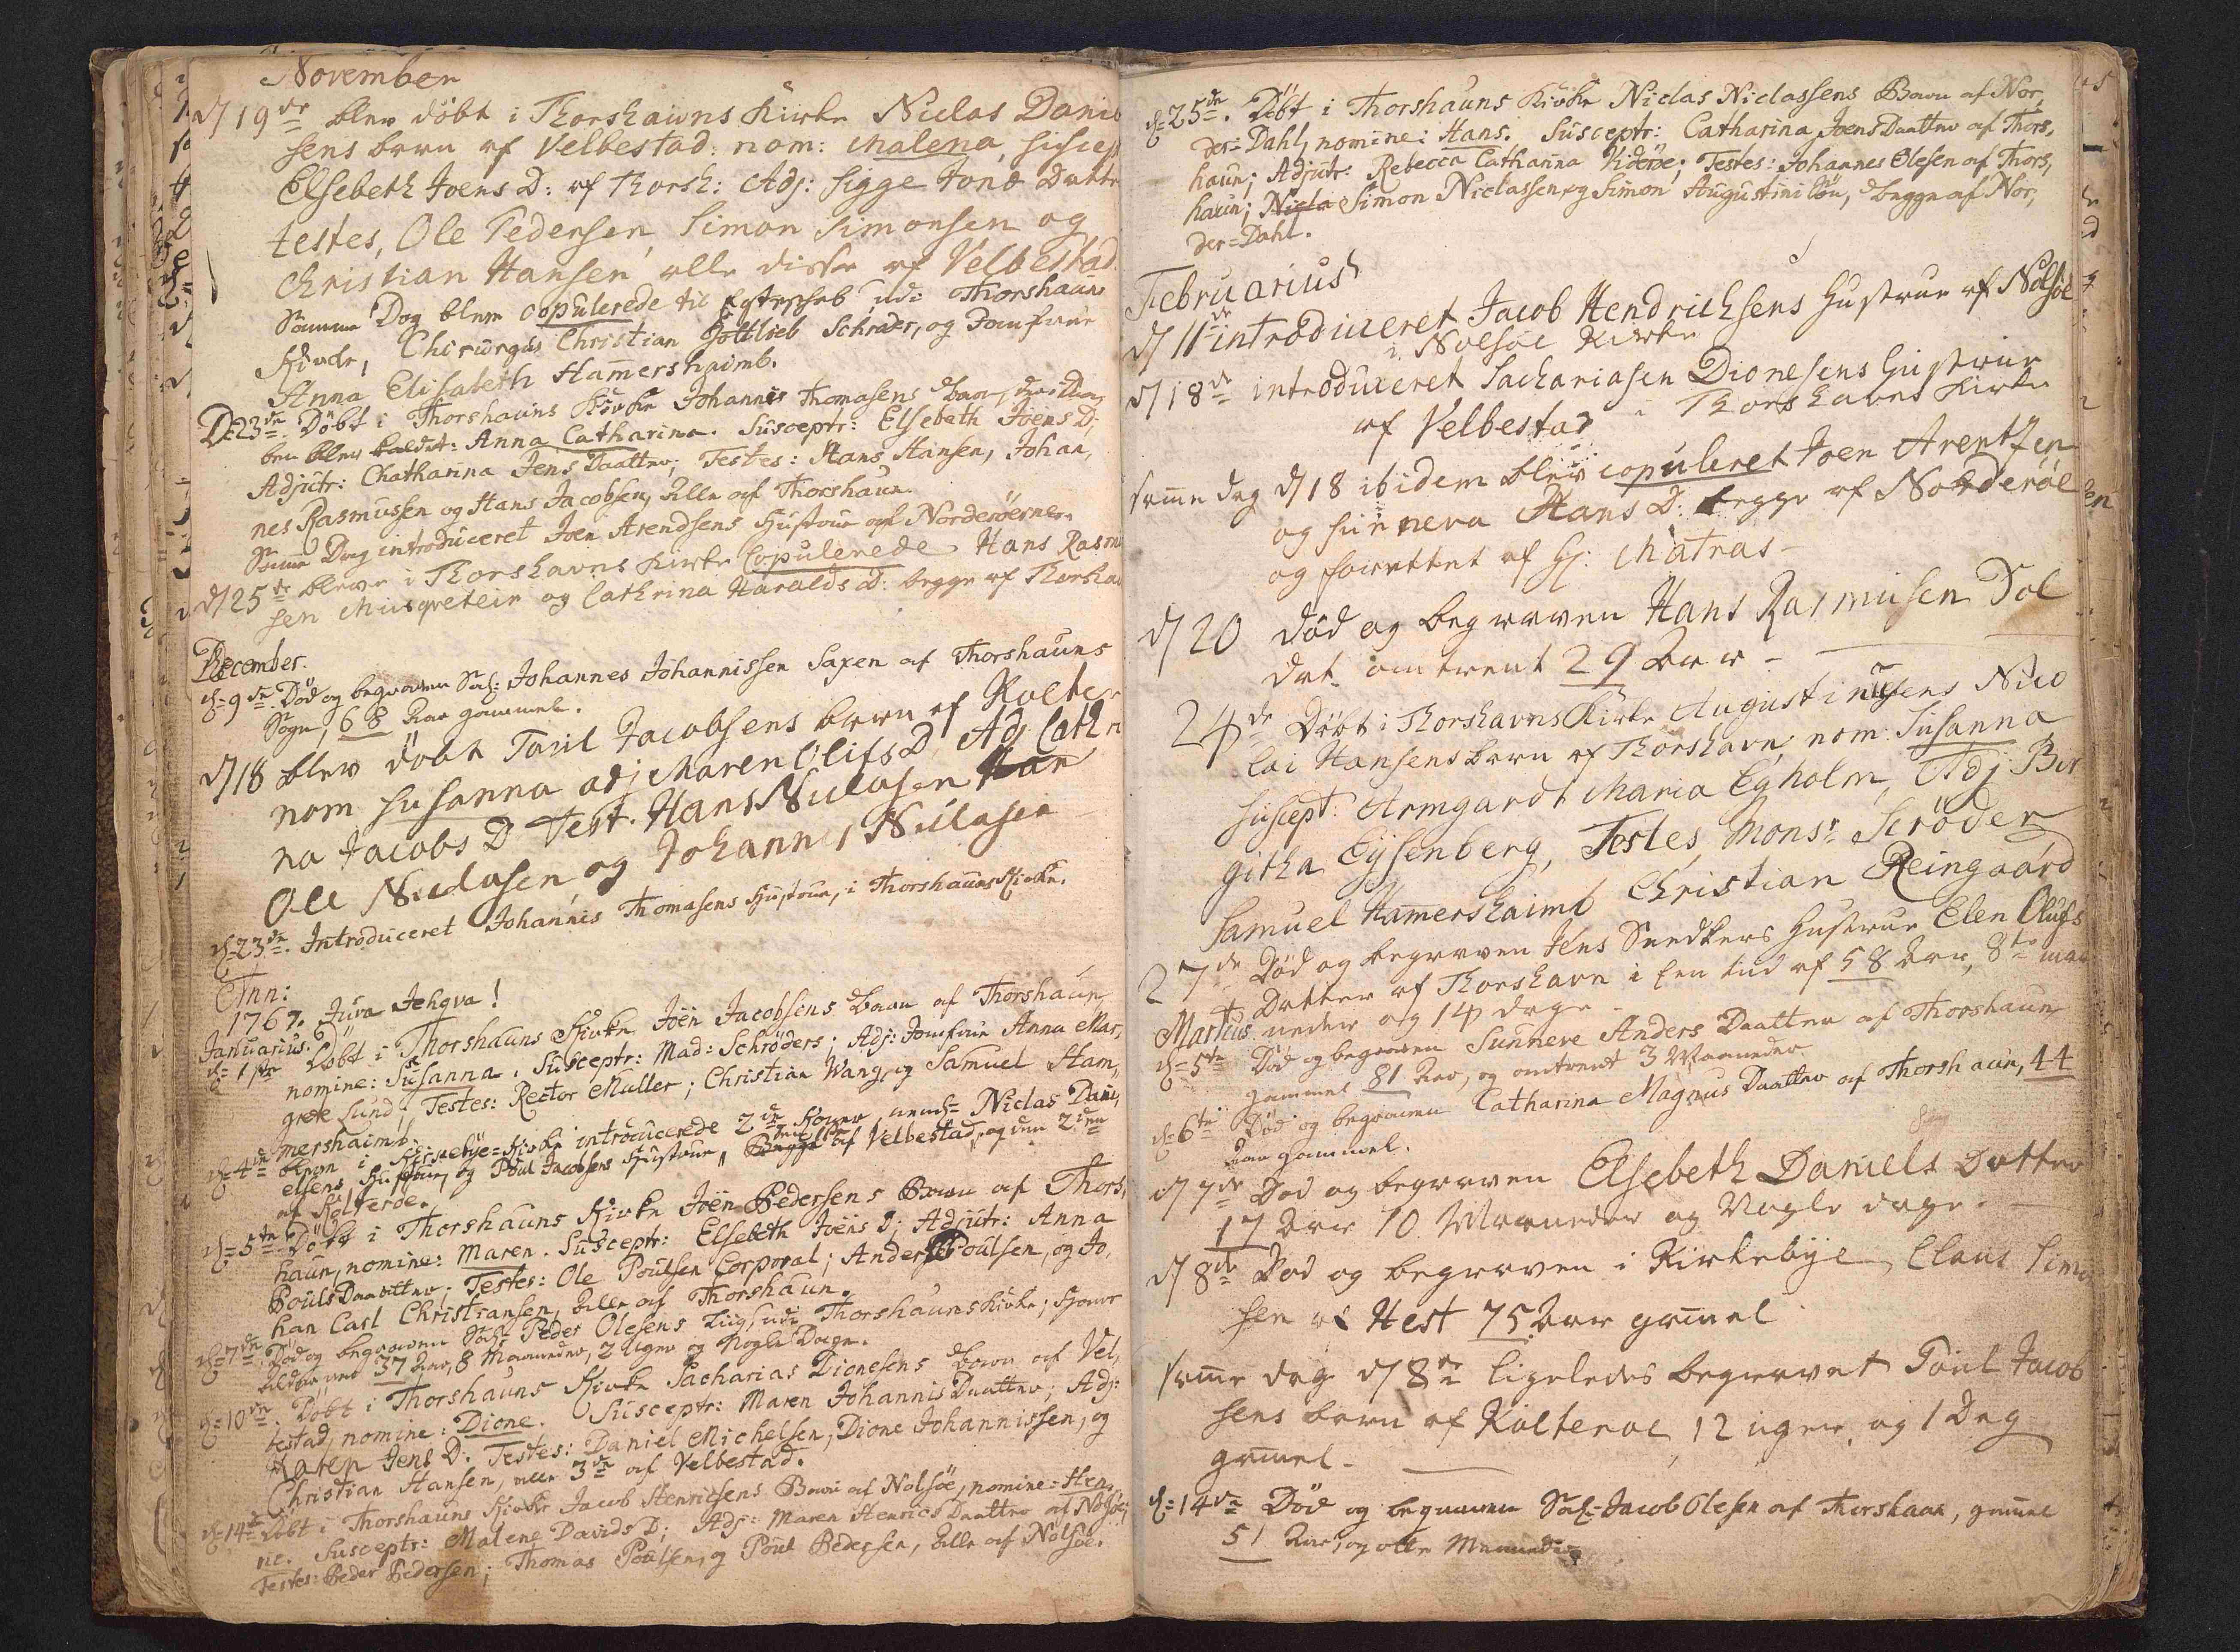 November
d/ 19de blev döbt i Thorshavns Kirke Niclas Daniel
sens barn af Velbestad: nom: Malena, suscep
Elsebeth Joens D: af Thorsh: Adj: Sigge Jons Datter
testes, Ole Pedersen, Simon Simonsen og
Christian Hansen alle disse af Velbestad.
Samme Dag bleve copulerede til Egteskab udi Thorshauns
Kirke, Chirurgus Christian Gottlieb Schrader, og Jomfrue
Anna Elisabeth Hamershaimb.
D=23de Döbt i Thorshauns Kirke Johannis Thomasens Barn,
blev kaldet: Anna Catharina. Susceptr: Elsebeth Joens D;
Adjutr: Chatharina Jens Daatter; Testes: Hans Hansen, Johan,
nes Rasmussen og Hans Jacobsen, Alle af Thorshaun.
Samme Dag introduceret Joen Arendsens Hustrue af Norderöerne.
d/ 25de bleve i Thorshavns Kirke Copulerede Hans Rasmu
sen Musqveteir og Cathrina Haralds D: begge af Thorshav
December.
d=9de Död og begraven Sal: Johannes Johannissen Saxen af Thorshauns
Sogn, 68 Aar gammel.
d/ 18 blev döbt Poul Jacobsens barn af Kolter
nom Susanna adj Maren Olufs D Adj Cathri
na Jacobs D Test. Hans Niclasen
Ole Niclasen og Johannes Niclasen
d=23de. Introduceret Johannis Thomasens Hustrue, i Thorshauns Kirke.
Ann:
1767. Juva Jehova!
Januarius.
d=1ste Döbt i Thorshauns Kirke Joen Jacobsens Barn af Thorshaun,
nomine: Susanna. Susceptr: Mad: Schröders; Adj: Jomfrue Anna Mar,
grete Lund; Testes: Rector Müller; Christian Wang, og Samuel Ham,
mershaimb.
d=4de bleve i Kirkebye=Kirke introducerede 2de Koner, nemlig Niclas Dani,
elsens Hustrue, og Poul Jacobsens Hustrue, Begge den 1ste af Velbestad, og den 2den
af Kolteröe.
d=5te Döbt i Thorshauns Kirke Joen Pedersens Barn af Thors,
haun, nomine: Maren. Susceptr: Elsebeth Joens D; Adjutr: Anna
Pouls Daatter; Testes: Ole Poulsen Corporal; Anders Poulsen, og Jo,
han Carl Christiansen, Alle af Thorshaun.
d=7de. Död og begraven Sal: Peder Olesens Liig, udi Thorshauns Kirke;
37 Aar, 8 Maaneder, 2 Uger og Nogle Dage.
d=10de. Döbt i Thorshauns Kirke Sacharias Dionesens Barn af Vel,
bestad, nomine: Dione. Susceptr: Maren Johannis Daatter; Adj:
Karen Jens D. Testes: Daniel Michelsen, Dione Johannissen, og
Christian Hansen, alle 3de af Velbestad.
d=14de Döbt i Thorshauns Kirke Jacob Henrichsens Barn af Nolsöe, nomine: Hen,
ne. Susceptr: Malene Davids D; Adj: Maren Henrics Daatter af Nolsöe;
Testes: Peder Pedersen; Thomas Poulsen, og Poul Pedersen, Alle af Nolsöe.
d=25de. Döbt i Thorshauns Kirke Niclas Niclassens Barn af Nor,
der=Dahl, nomine: Hans. Susceptr: Catharina Joens Daatter af Thors,
haun; Adjutr: Rebecca Catharina Videröe; Testes: Johannes Olesen af Thors,
haun; Nicla Simon Niclassen, og Simon Augustini Sön, begge af Nor,
der=Dahl.
Februarius
d/ 11de introduceret Jacob Hendrichsens Hustrue af Nolsöe
i Nolsöe Kirke
d/ 18de introduceret Sachariasen Dionesens Hustrue
af Velbestad i Thorshavns Kirke
samme dag d/ 18 ibidem blev copuleret Joen Arentzen
og Sunneva Hans D: begge af Norderöe
og forrettet af Hr: Matras -
d/ 20 död og begraven Hans Rasmusen Sol
dat omtrent 29 Aar -
24de Döbt i Thorshavns Kirke Augustinusens Nico
lai Hansens barn af Thorshavn, nom: Susanna
Suscept: Armgardt Maria Egholm, Adj: Bir
githa Eysenberg, Testes, Monsr. Scröder
Samuel Hamershaimb Christian Reingaard
27de Död og begraven Jens Snedkers Hustrue Elen Olufs
Datter af Thorshavn i sen tid af 58 Aar, 8te maa
Martius neder og 14 dage -
d=5te Död og begraven Sunneve Anders Daatter af Thorshaun,
gammel 81 Aar, og omtrent 3 Maaneder.
d=6te Död og begraven Catharina Magnus Daatter af Thorshaun, 44
Aar gammel.
d/ 7de Död og begraven Elsebeth Daniels Datter
17 Aar 10 Maaneder og Nogle dage. -
d/ 8de Död og begraven i Kirkebye, Claus Simo
sen af Hest 75 Aar gamel
samme dag d/ 8de ligeledes begravet Poul Jacob
sens barn af Kolteröe 12 uger, og 1 Dag
gamel -
d=14de Död og begraven Sal: Jacob Olesen af Thorshaun, gamel
51 Aar, og otte Maaneder